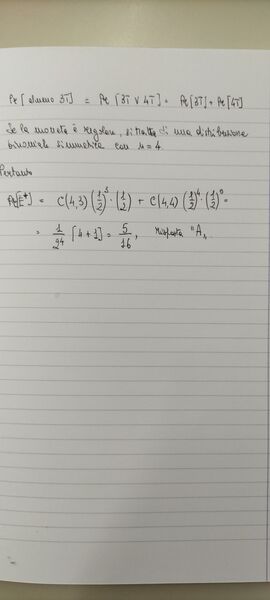 Pr [almeno 3T] = Pr [3T V 4T] = Pr [3T] + Pr [4T]
Se la moneta è regolare, si tratta di una distribuzione
binomiale simmetrica con n = 4.
Pertanto
Pr[E*] = C(4,3) (1/2)³ · (1/2) + C(4,4) (1/2)⁴ · (1/2)⁰ =
= 1/2⁴ [4+1] = 5/16, risposta "A„